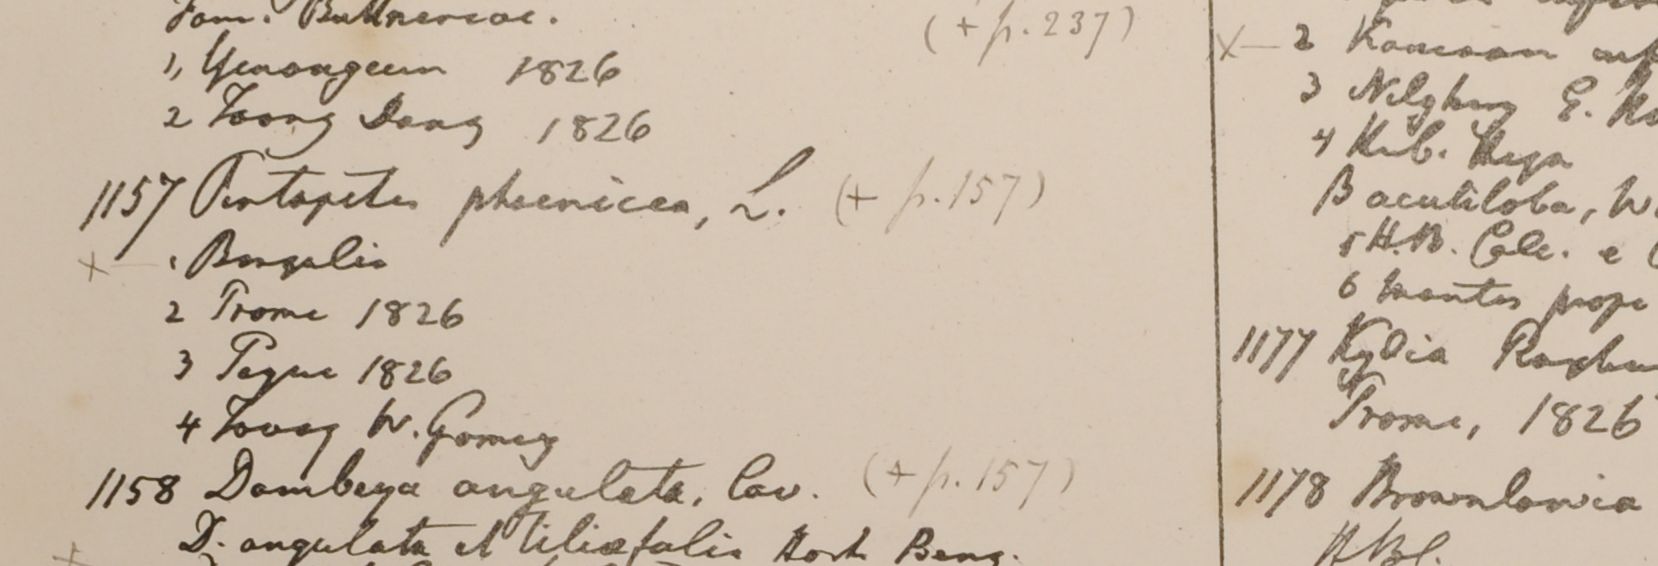 Fam. Buttneriac. (+ p. 237)
1, Yenangeun 1826
2 Toong Dong 1826
1157 Pentapetes phoenicea, L. (+ p. 157)
x— 1 Bengalia
2 Prome 1826
3 Pegue 1826
4 Tavoy W. Gomez
1158 Dombeya angulata, Cav. (+ p. 157)
D. angulata et tiliaefolia Hort Beng.
x— 2
3 Nilghery E.
4 Herb. Heyn
B acutiloba, W.
5 H.B. Calc. e
6 montes prope
1177 Kydia Roxbu
Prome, 1826
1178 Brownlowia
HBC.